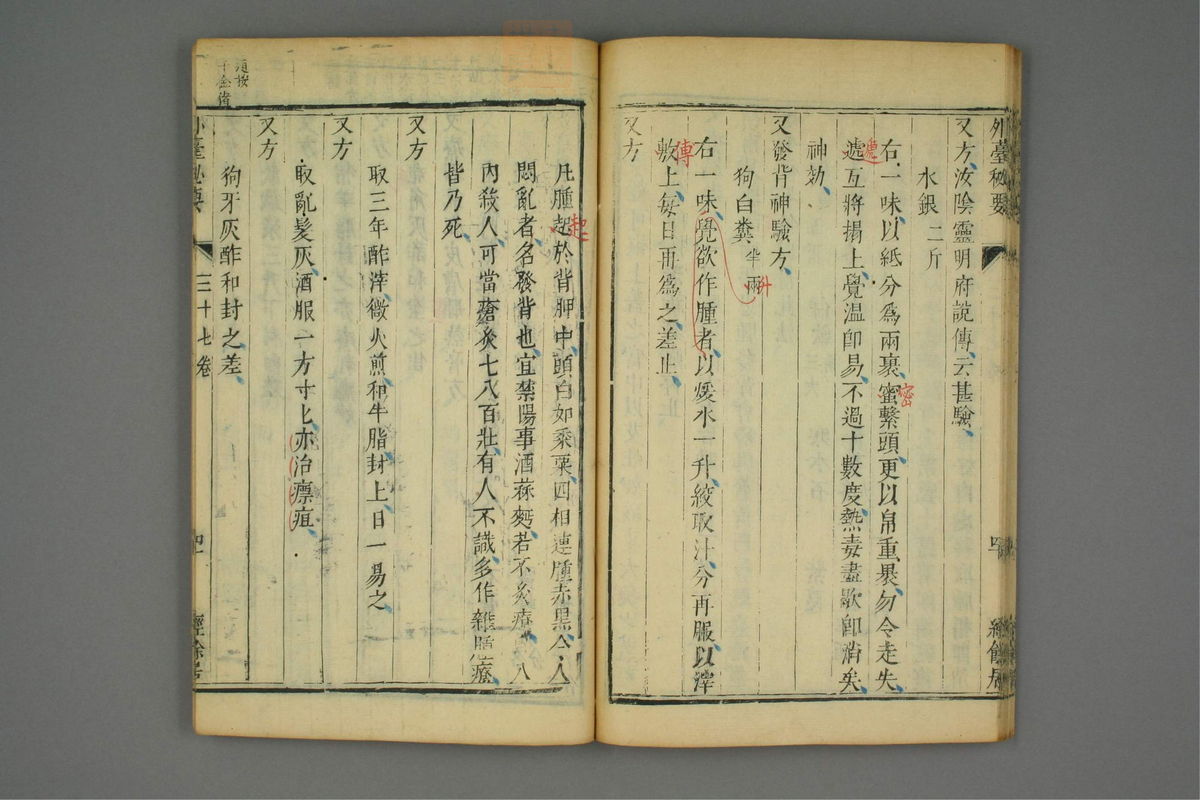 外臺秘要
又方汝陰靈明府説傳云甚驗
水銀二斤
右一味以紙分為兩裹蜜繫頭更以帛重裹勿令走失
密
遞互將搨上覺温即易不過十數度熱毒盡歇即消矣
神効
又發背神驗方
狗白糞半兩
升
右一味覺欲作腫者以煖水一升絞取汁分再服以滓
傅
敷上每日再為之差止
又方
凡腫起於背胛中頭白如黍粟四相連腫赤黑令人
起
悶亂者名發背也宜禁陽事酒蒜麪若不灸療 入
內殺人可當瘡灸七八百壯有人不識多作雜腫療
皆乃死
又方
取三年酢滓微火煎和牛脂封上日一易之
又方
取亂髮灰酒服一方寸匕亦治瘭疽
又方
狗牙灰酢和封之差
外臺秘要
三十七卷
經餘居